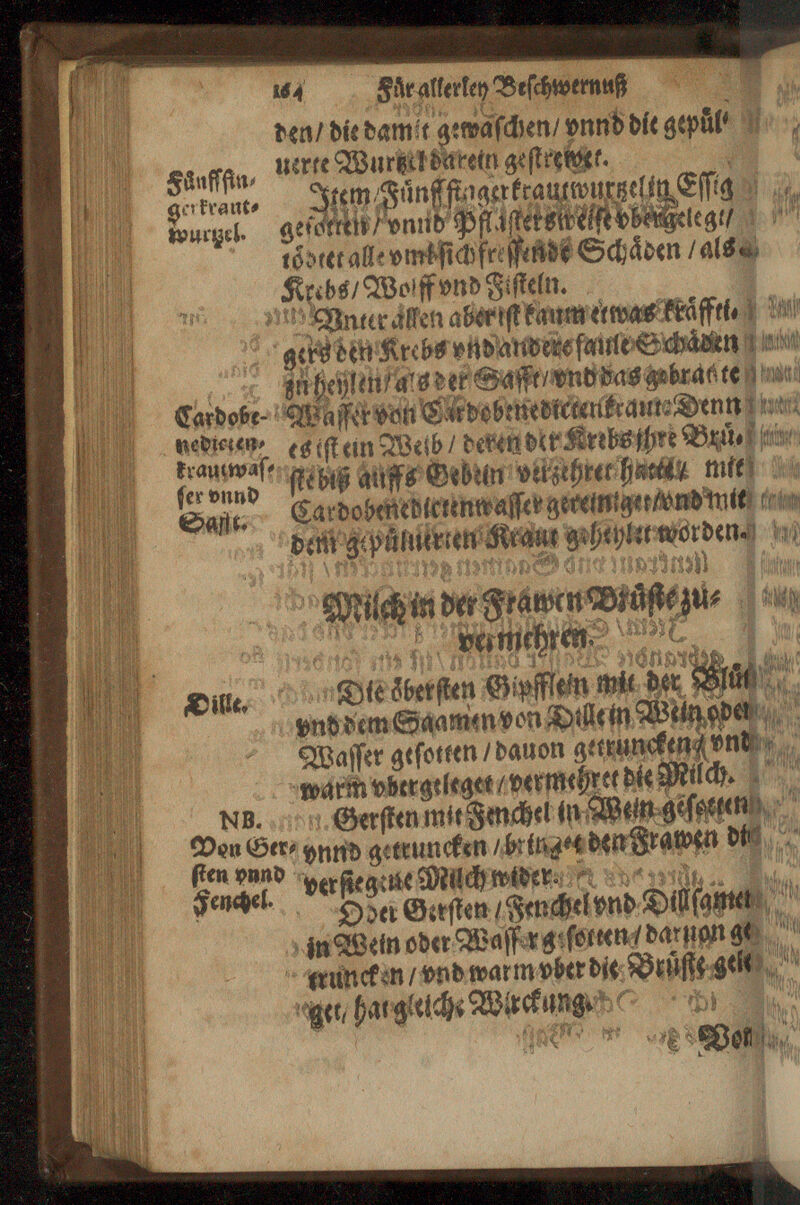 164 Für allerley Beschwernuß
den/ die damit gewaschen/ vnnd die gepül⸗
uerte Wurtzel darein gestrewet.
Fünffin⸗
gerkraut⸗
wurtzel.
Item/ Fünffingerkrautwurtzel in Essig
gesotten/ vnnd Pflasterweise vbergelegt/
tödtet alle vmbsichfressende Schäden / als
Krebs/ Wolff vnd Fisteln.
Vnter allen aber ist kaum etwas kräffti⸗
gers den Krebs vnd andere faule Schäden
zu heylen/ als der Safft/ vnd das gebrante
Cardobe⸗
nedicten⸗
krautwas⸗
ser vnnd
Safft.
Wasser von Cardobenedictenkraut: Denn
es ist ein Weib / deren der Krebs jhre Brü⸗
ste biß auffs Gebein verzehret hatte/ mit
Cardobenedictenwasser gereiniget/ vnd mit
dem gepüluerten Kraut geheylet worden.
Milch in der Frawen Brüste zu⸗
vermehren.
Dille.
Die öbersten Gipfflein mit der Blüt
vnd dem Saamen von Dille in Wein oder
Wasser gesotten / dauon getruncken/ vnd
warm vbergeleget / vermehret die Milch.
NB.
Von Ger⸗
sten vnnd
Fenchel.
Gersten mit Fenchel in Wein gesotten
vnnd getruncken / bringet den Frawen die
versiegene Milch wider.
Oder Gersten / Fenchel vnd Dillsamen
in Wein oder Wasser gesotten/ daruon ge
truncken / vnd warm vber die Brüste gele
get, hat gleiche Wirckung.
Von